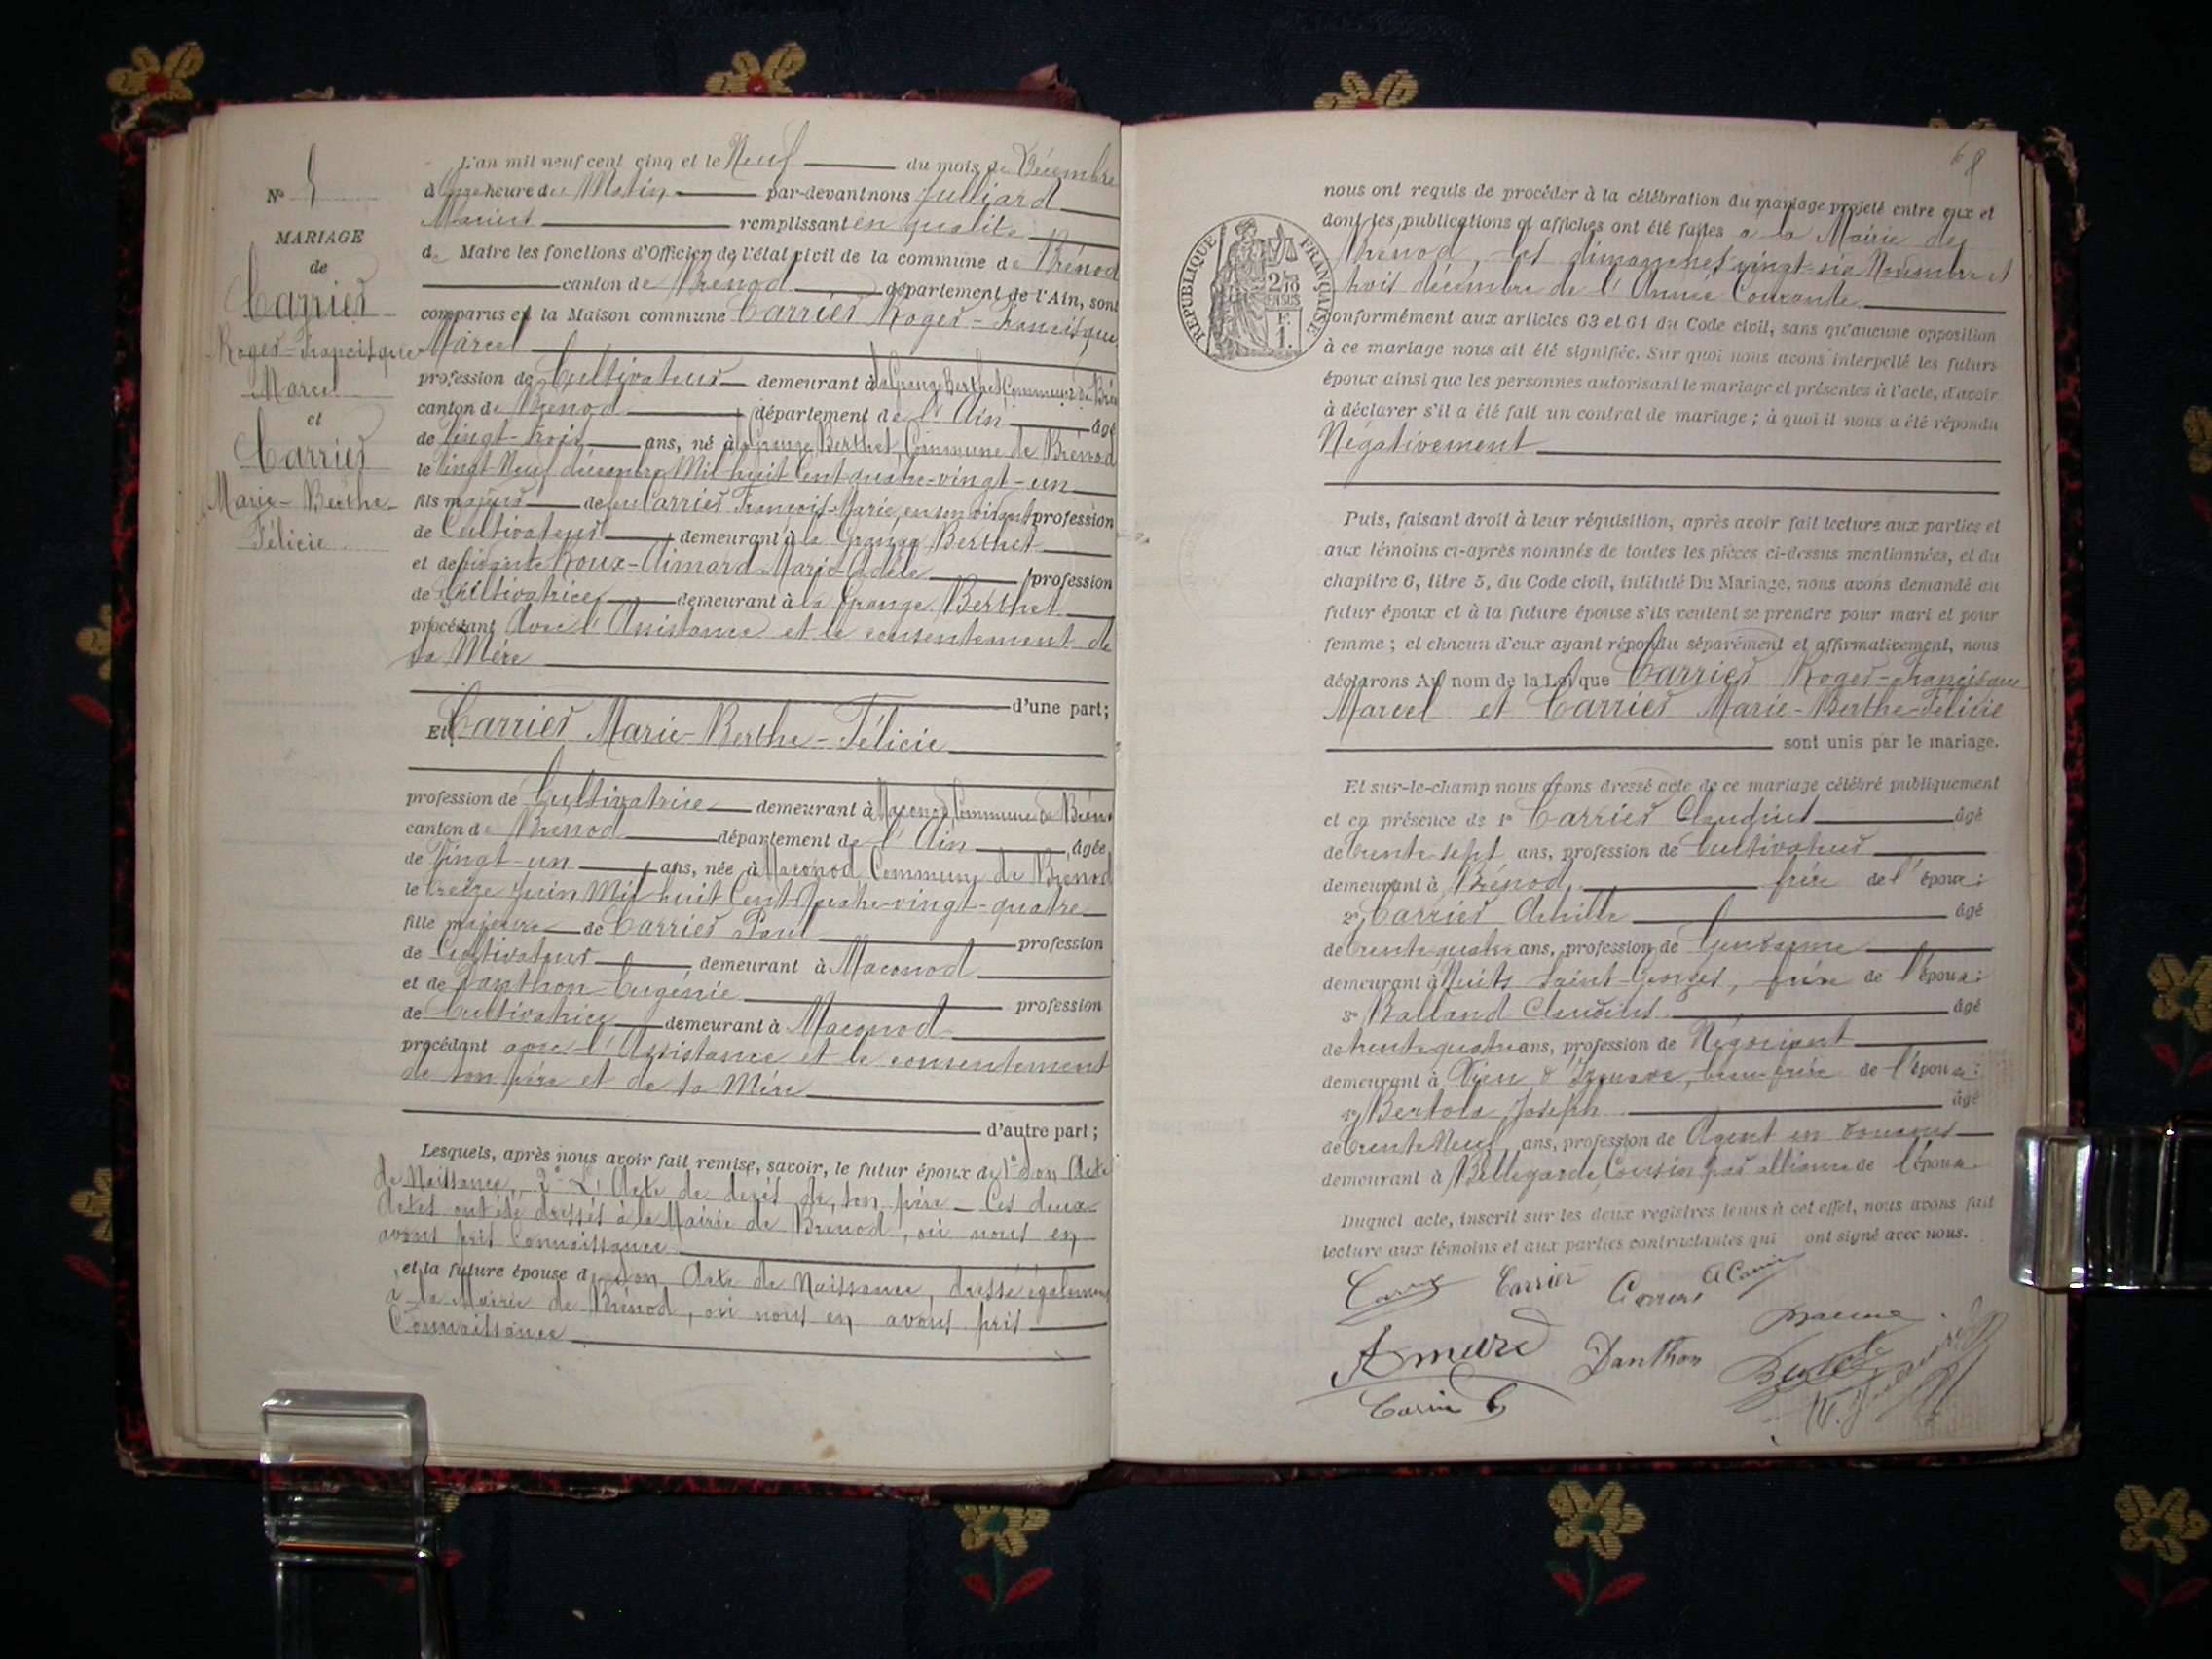 N°
MARIAGE
de
Carrier
Roger-Francisque
Marcel
et
Carrier
Marie-Berthe-
Félicie
L'an mil neuf cent cinq et le Neuf du mois de Décembre
à Onze heure du Matin par-devant nous Julliard
Marius remplissant en qualité
de Maire les fonctions d'Officier de l'état civil de la commune de Brénod
canton de Brénod département de l'Ain, sont
comparus en la Maison commune Carrier Roger-Francisque
Marcel
profession de Cultivateur demeurant à la Grange Berthet Commune de Brén
canton de Brénod département de l'Ain âgé
de Vingt-trois ans, né à la Grange Berthet, Commune de Brénod
le Vingt-Neuf décembre Mil huit Cent quatre-vingt-un
fils majeur de feu Carrier François-Marie, en son vivant profession
de Cultivateur demeurant à la Grange Berthet
et de vivante Roux-Aimard Marie-Adèle profession
de Cultivatrice demeurant à la Grange Berthet
procédant Avec l'Assistance et le consentement de
sa Mère
d'une part;
Et Carrier Marie-Berthe-Félicie
profession de Cultivatrice demeurant à Maconod Commune de Bréno
canton de Brénod département de l'Ain, âgée
de Vingt-un ans, née à Maconod Commune de Brénod
le treize Juin Mil huit Cent Quatre-vingt-quatre
fille majeure de Carrier Paul profession
de Cultivateur demeurant à Maconod
et de Danthon Eugénie profession
de Cultivatrice demeurant à Maconod
procédant avec l'Assistance et le consentement
de son père et de sa Mère
d'autre part;
Lesquels, après nous avoir fait remise, savoir, le futur époux de 1° Son Acte
de Naissance, 2° L'Acte de décès de son père - Ces deux
Actes ont été dressés à la Mairie de Brénod, où nous en
avons pris Connaissance
et la future épouse de son Acte de Naissance, dressé également
à la Mairie de Brénod, où nous en avons pris
Connaissance
68
RÉPUBLIQUE FRANÇAISE
2/10
EN SUS
1F.
nous ont requis de procéder à la célébration du mariage projeté entre eux et
dont les publications et affiches ont été faites à la Mairie de
Brénod, les dimanches vingt-six Novembre et
trois décembre de l'Année Courante
conformément aux articles 63 et 64 du Code civil, sans qu'aucune opposition
à ce mariage nous ait été signifiée. Sur quoi nous avons interpellé les futurs
époux ainsi que les personnes autorisant le mariage et présentes à l'acte, d'avoir
à déclarer s'il a été fait un contrat de mariage; à quoi il nous a été répondu
Négativement
Puis, faisant droit à leur réquisition, après avoir fait lecture aux parties et
aux témoins ci-après nommés de toutes les pièces ci-dessus mentionnées, et du
chapitre 6, titre 5, du Code civil, intitulé Du Mariage, nous avons demandé au
futur époux et à la future épouse s'ils veulent se prendre pour mari et pour
femme; et chacun d'eux ayant répondu séparément et affirmativement, nous
déclarons Au nom de la Loi que Carrier Roger-Francisque
Marcel et Carrier Marie-Berthe-Félicie
sont unis par le mariage.
Et sur-le-champ nous avons dressé acte de ce mariage célébré publiquement
et en présence de 1° Carrier Claudius âgé
de trente-sept ans, profession de Cultivateur
demeurant à Brénod, frère de l'époux;
2° Carrier Achille âgé
de trente-quatre ans, profession de Gendarme
demeurant à Nuits Saint-Georges, frère de l'époux;
3° Balland Claudius âgé
de trente-quatre ans, profession de Négociant
demeurant à Vieu d'Izenave, beau-frère de l'épouse;
4° Bertola Joseph âgé
de trente-Neuf ans, profession de Agent en douanes
demeurant à Bellegarde, Cousin par alliance de l'épouse
Duquel acte, inscrit sur les deux registres tenus à cet effet, nous avons fait
lecture aux témoins et aux parties contractantes qui ont signé avec nous.
Carrier Carrier A Carrier
Danthon